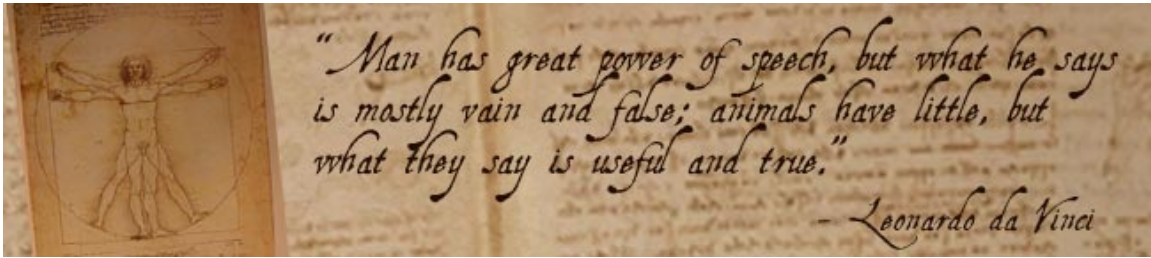 “Man has great power of speech, but what he says
is mostly vain and false; animals have little, but
what they say is useful and true.”
- Leonardo da Vinci